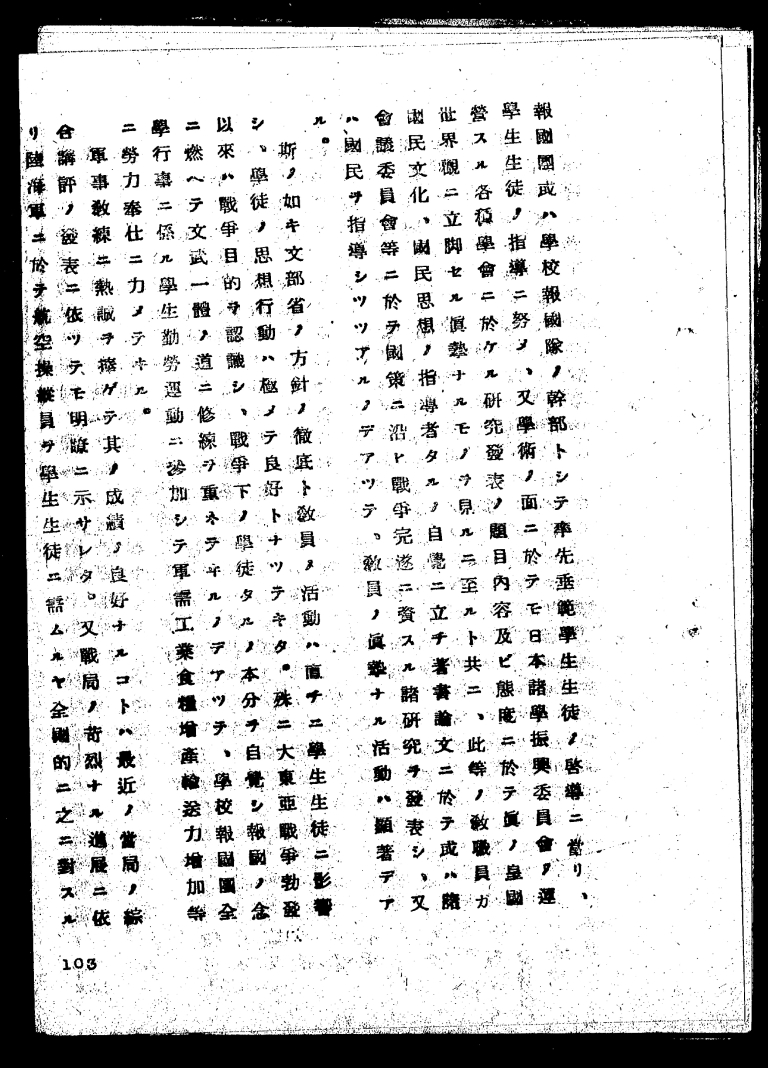 報國團或ハ學校報國隊ノ幹部トシテ率先垂範學生生徒ノ啓導ニ當リ、
學生生徒ノ指導ニ努メ、又學術ノ面ニ於テモ日本諸學振興委員會ノ運
營スル各種學會ニ於ケル研究發表ノ題目內容及ビ態度ニ於テ眞ノ皇國
世界觀ニ立脚セル眞摯ナルモノヲ見ルニ至ルト共ニ、此等ノ敎職員ガ
國民文化、國民思想ノ指導者タルノ自覺ニ立チ著書論文ニ於テ或ハ諸
會議委員會等ニ於テ國策ニ沿ヒ戰爭完遂ニ資スル諸研究ヲ發表シ、又
ハ國民ヲ指導シツツアルノデアツテ、敎員ノ眞摯ナル活動ハ顯著デア
ル。
斯ノ如キ文部省ノ方針ノ徹底ト敎員ノ活動ハ直チニ學生生徒ニ影響
シ、學徒ノ思想行動ハ極メテ良好トナツテキタ。殊ニ大東亞戰爭勃發
以來ハ戰爭目的ヲ認識シ、戰爭下ノ學徒タルノ本分ヲ自覺シ報國ノ念
ニ燃ヘテ文武一體ノ道ニ修練ヲ重ネテヰルノデアツテ、學校報國團全
學行事ニ係ル學生勤勞運動ニ參加シテ軍需工業食糧增產輸送力增加等
ニ勞力奉仕ニ力メテキル。
軍事敎練ニ熱誠ヲ捧ゲテ其ノ成績ノ良好ナルコトハ最近ノ當局ノ綜
合講評ノ發表ニ依ツテモ明瞭ニ示サレタ。又戰局ノ苛烈ナル進展ニ依
リ陸海軍ニ於テ航空操縱員ヲ學生生徒ニ需ムルヤ全國的ニ之ニ對スル
103